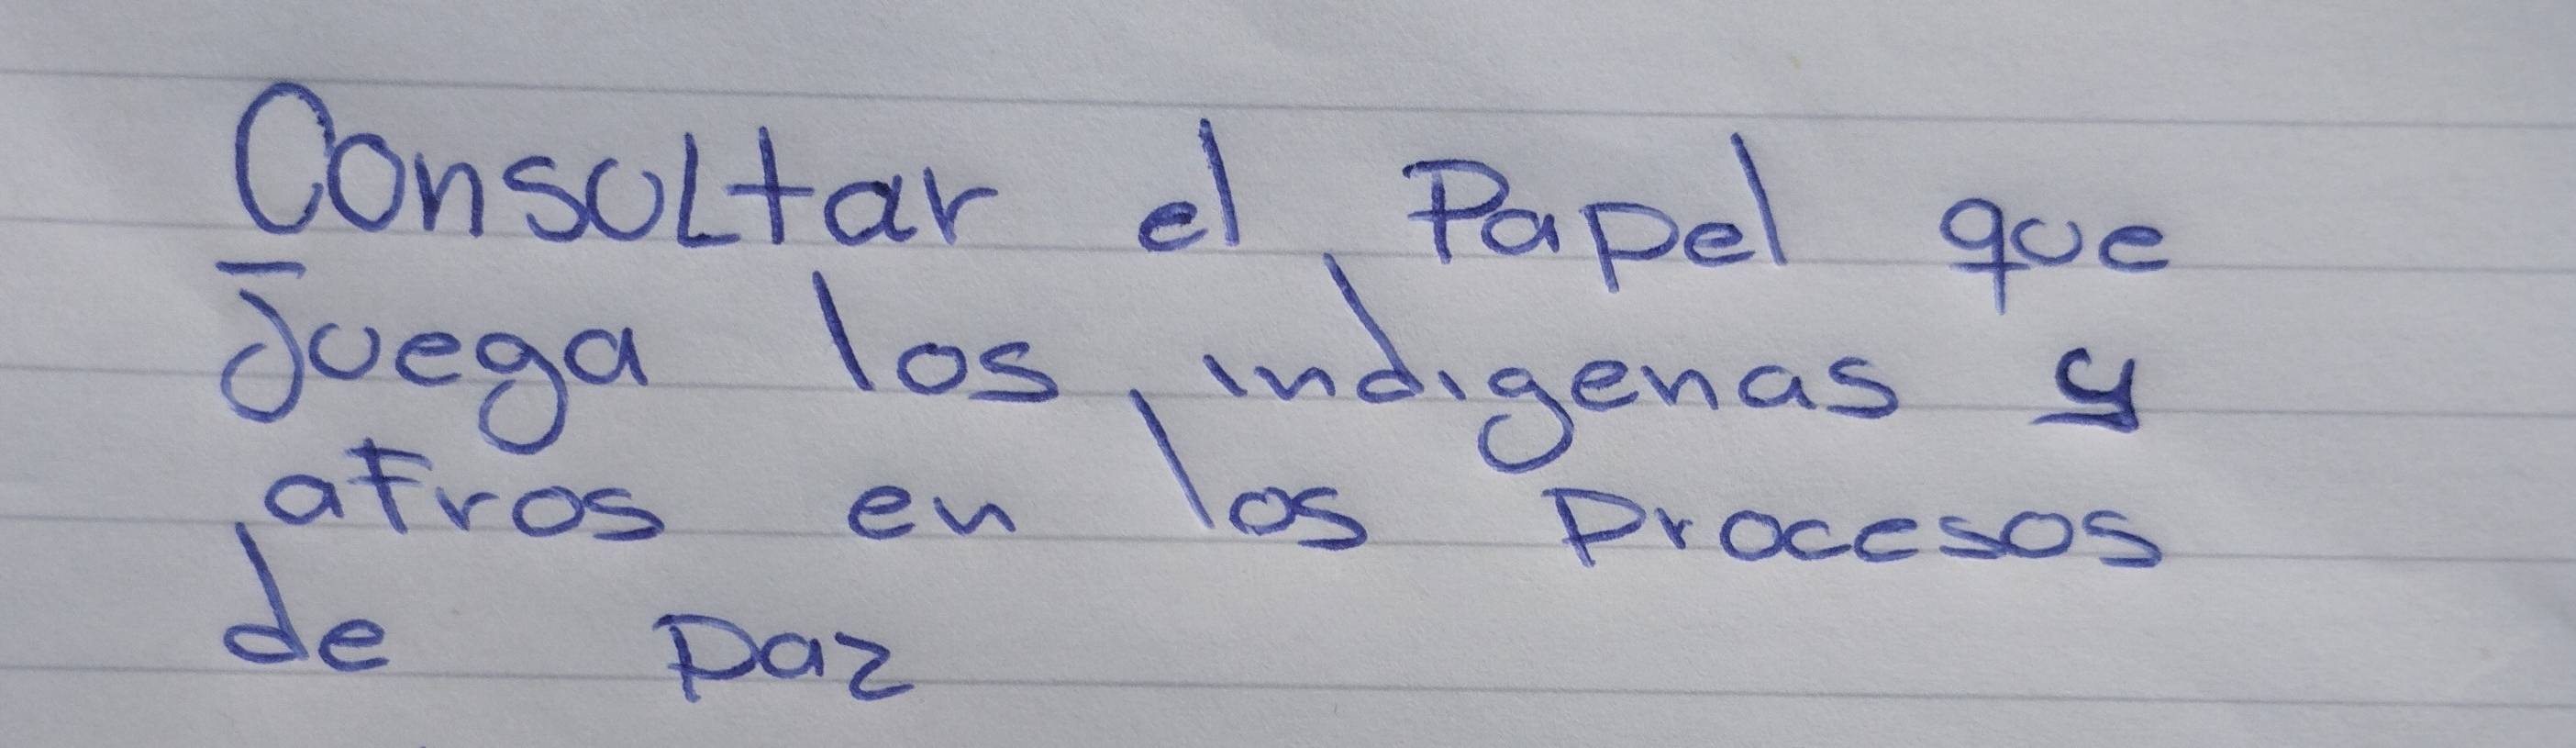 Consultar el Papel que
juega los indigenas y
afros en los procesos
de paz